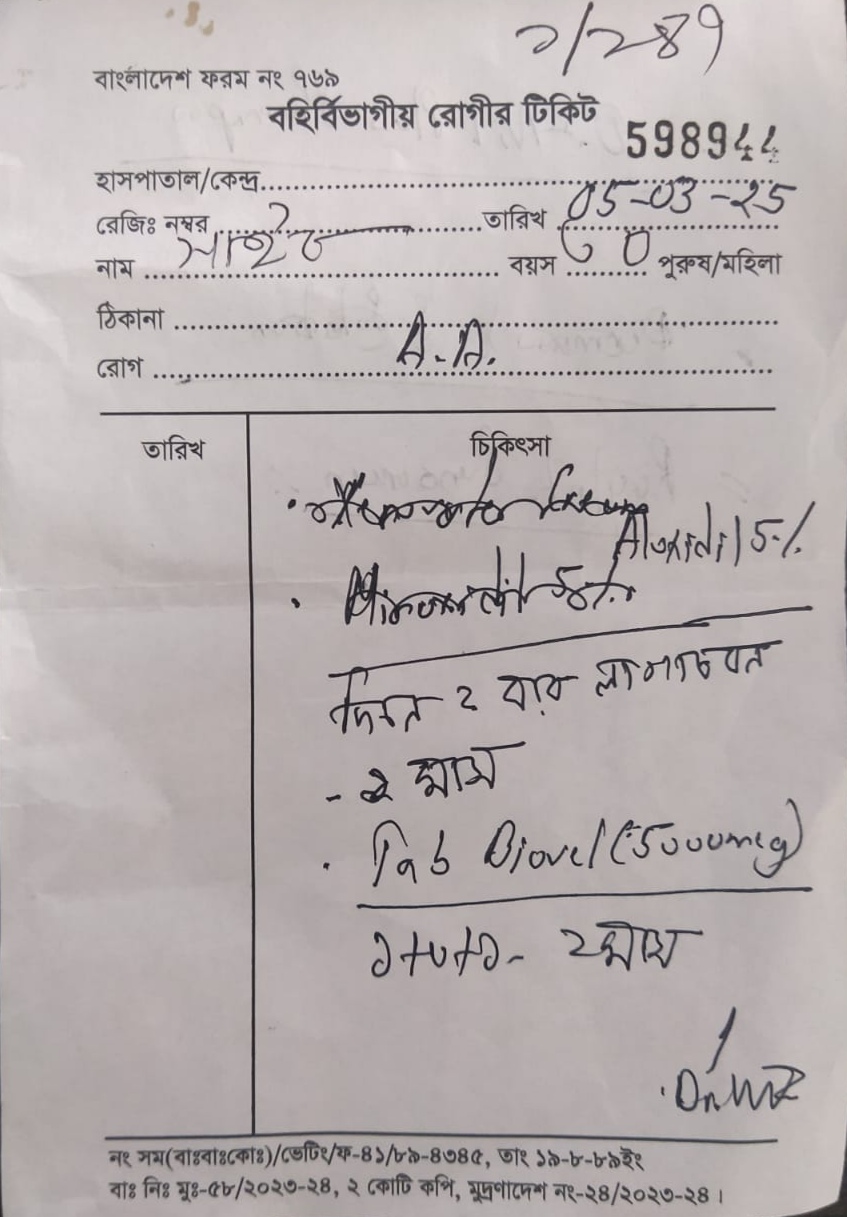 ২/২৪৭
বাংলাদেশ ফরম নং ৭৬৯
বহির্বিভাগীয় রোগীর টিকিট
598944
হাসপাতাল/কেন্দ্র
রেজিঃ নম্বর তারিখ 05-03-25
নাম বয়স ৩০ পুরুষ/মহিলা
ঠিকানা
রোগ A.A.
তারিখ চিকিৎসা
5%
দিনে ২ বার লাগাবেন
- ২ মাস
Tab (5000mcg)
১+০+১- ২ মাস
নং সম(বাঃবাঃকোঃ)/ভেটিং/ফ-৪১/৮৯-৪৩৪৫, তাং ১৯-৮-৮৯ইং
বাঃ নিঃ মুঃ-৫৮/২০২৩-২৪, ২ কোটি কপি, মুদ্রণাদেশ নং-২৪/২০২৩-২৪।